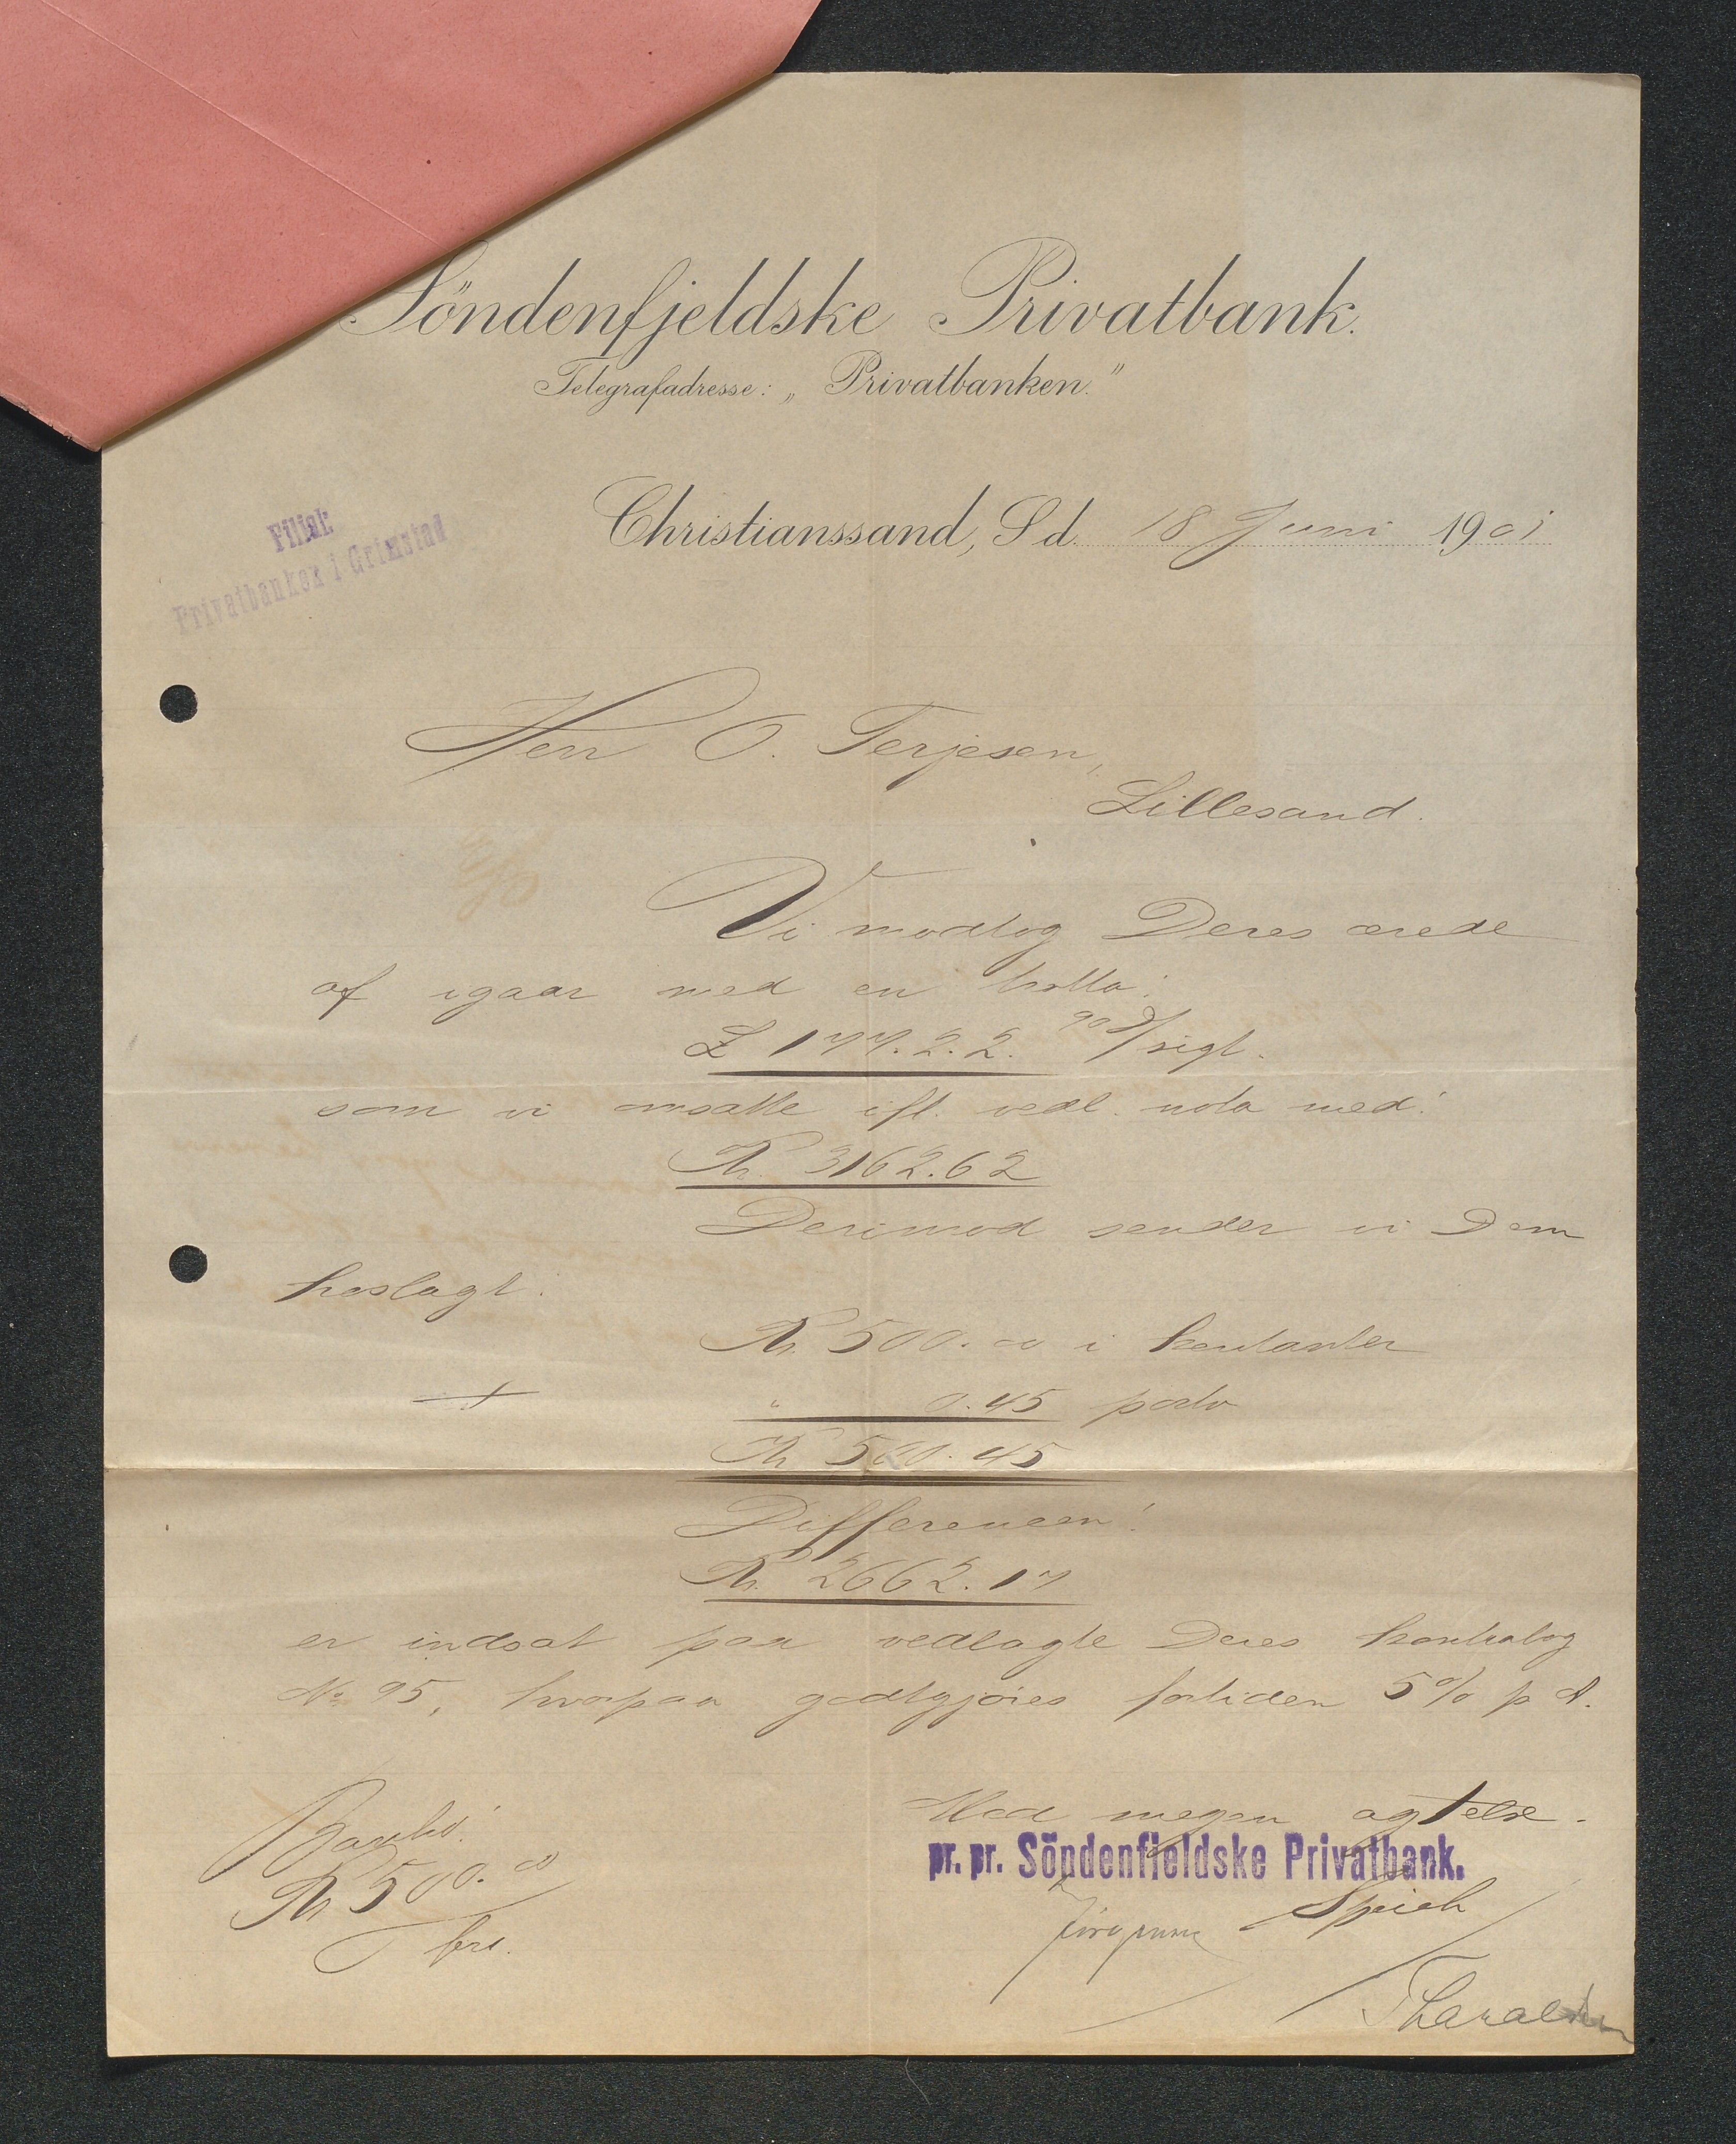 Söndenfjeldske Privatbank.
Telegrafadresse: „Privatbanken."
Christianssand, S d. 18 Juni 1901
Filial:
Privatbanken i Grimstad
Herr O. Terjesen,
Lillesand.
Vi modtog Deres ærede
af igaar med en tratta:
£ 177.2.2. 90 d/sigt.
som vi omsatte ifl. vedl. nota med:
Kr. 3162.62
Derimod sender vi Dem
hoslagt:
Kr. 500.00 i kontanter
" 0.45 porto
Kr 500.45
Differencen:
Kr. 2662.17
er indsat paa vedlagte Deres kontrabog
No 95, hvorpaa godtgjöres fortiden 5% p A.
Med megen agtelse.
pr. pr. Söndenfjeldske Privatbank.
Kr 500.00